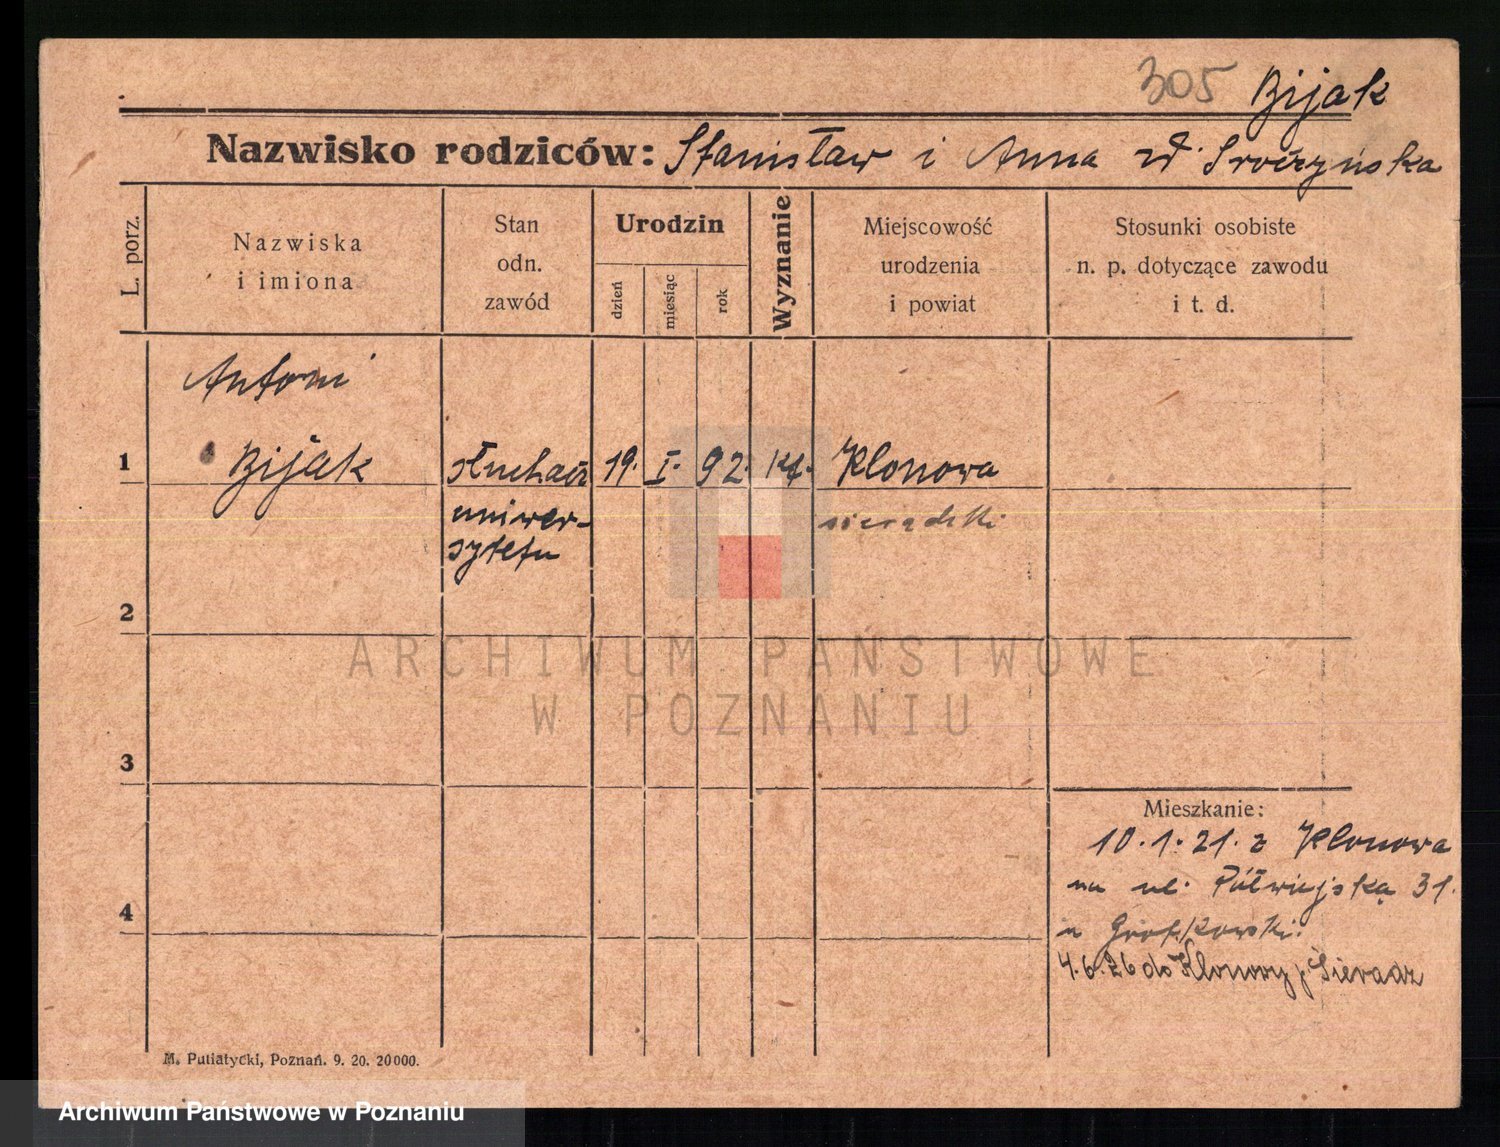 305 Bijak
Nazwisko rodziców: Stanisław i Anna
L. porz.
Nazwiska
i imiona
Stan
odn.
zawód
Urodzin
dzień
miesiąc
rok
Wyznanie
Miejscowość
urodzenia
i powiat
Stosunki osobiste
n. p. dotyczące zawodu
i t. d.
Antoni
1 Bijak słuchacz 19. I. 92. kt. Klonowa
uniwer-
sytetu
sieradzki
2
3
4
Mieszkanie:
10.1.21. z Klonowa
na ul. Półwiejską 31.
4.6.26 do Klonowy p. Sieradz
M. Putiatycki, Poznań. 9. 20. 20000.
ARCHIWUM PAŃSTWOWE
W POZNANIU
Archiwum Państwowe w Poznaniu